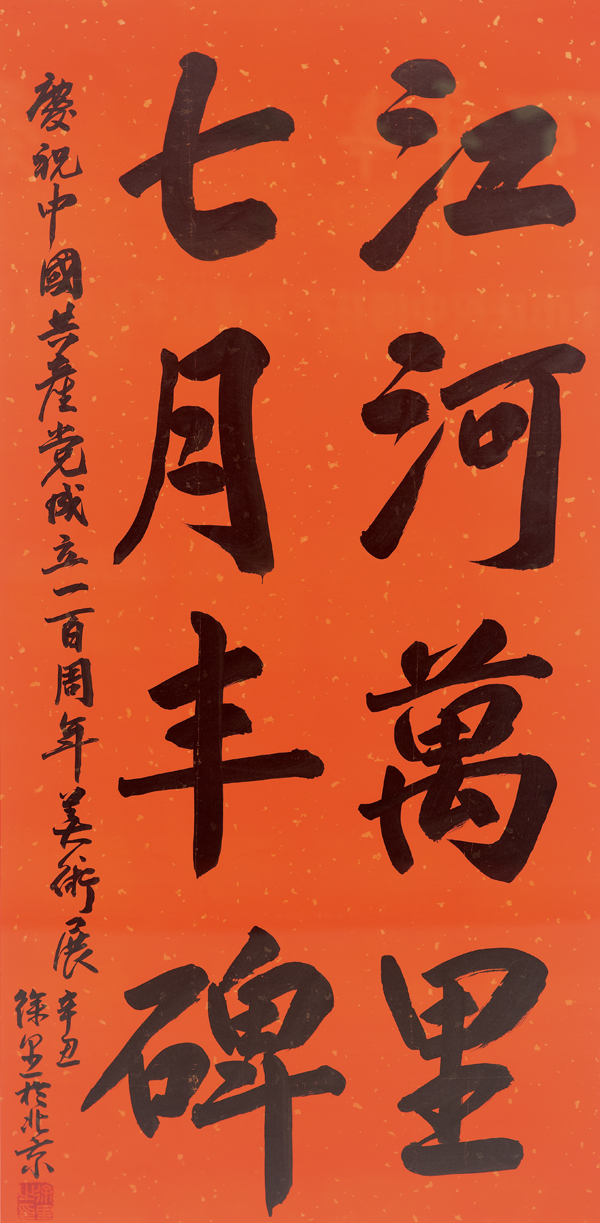 江河萬里
七月丰碑
慶祝中國共產党成立一百周年美術展
辛丑
徐里於北京